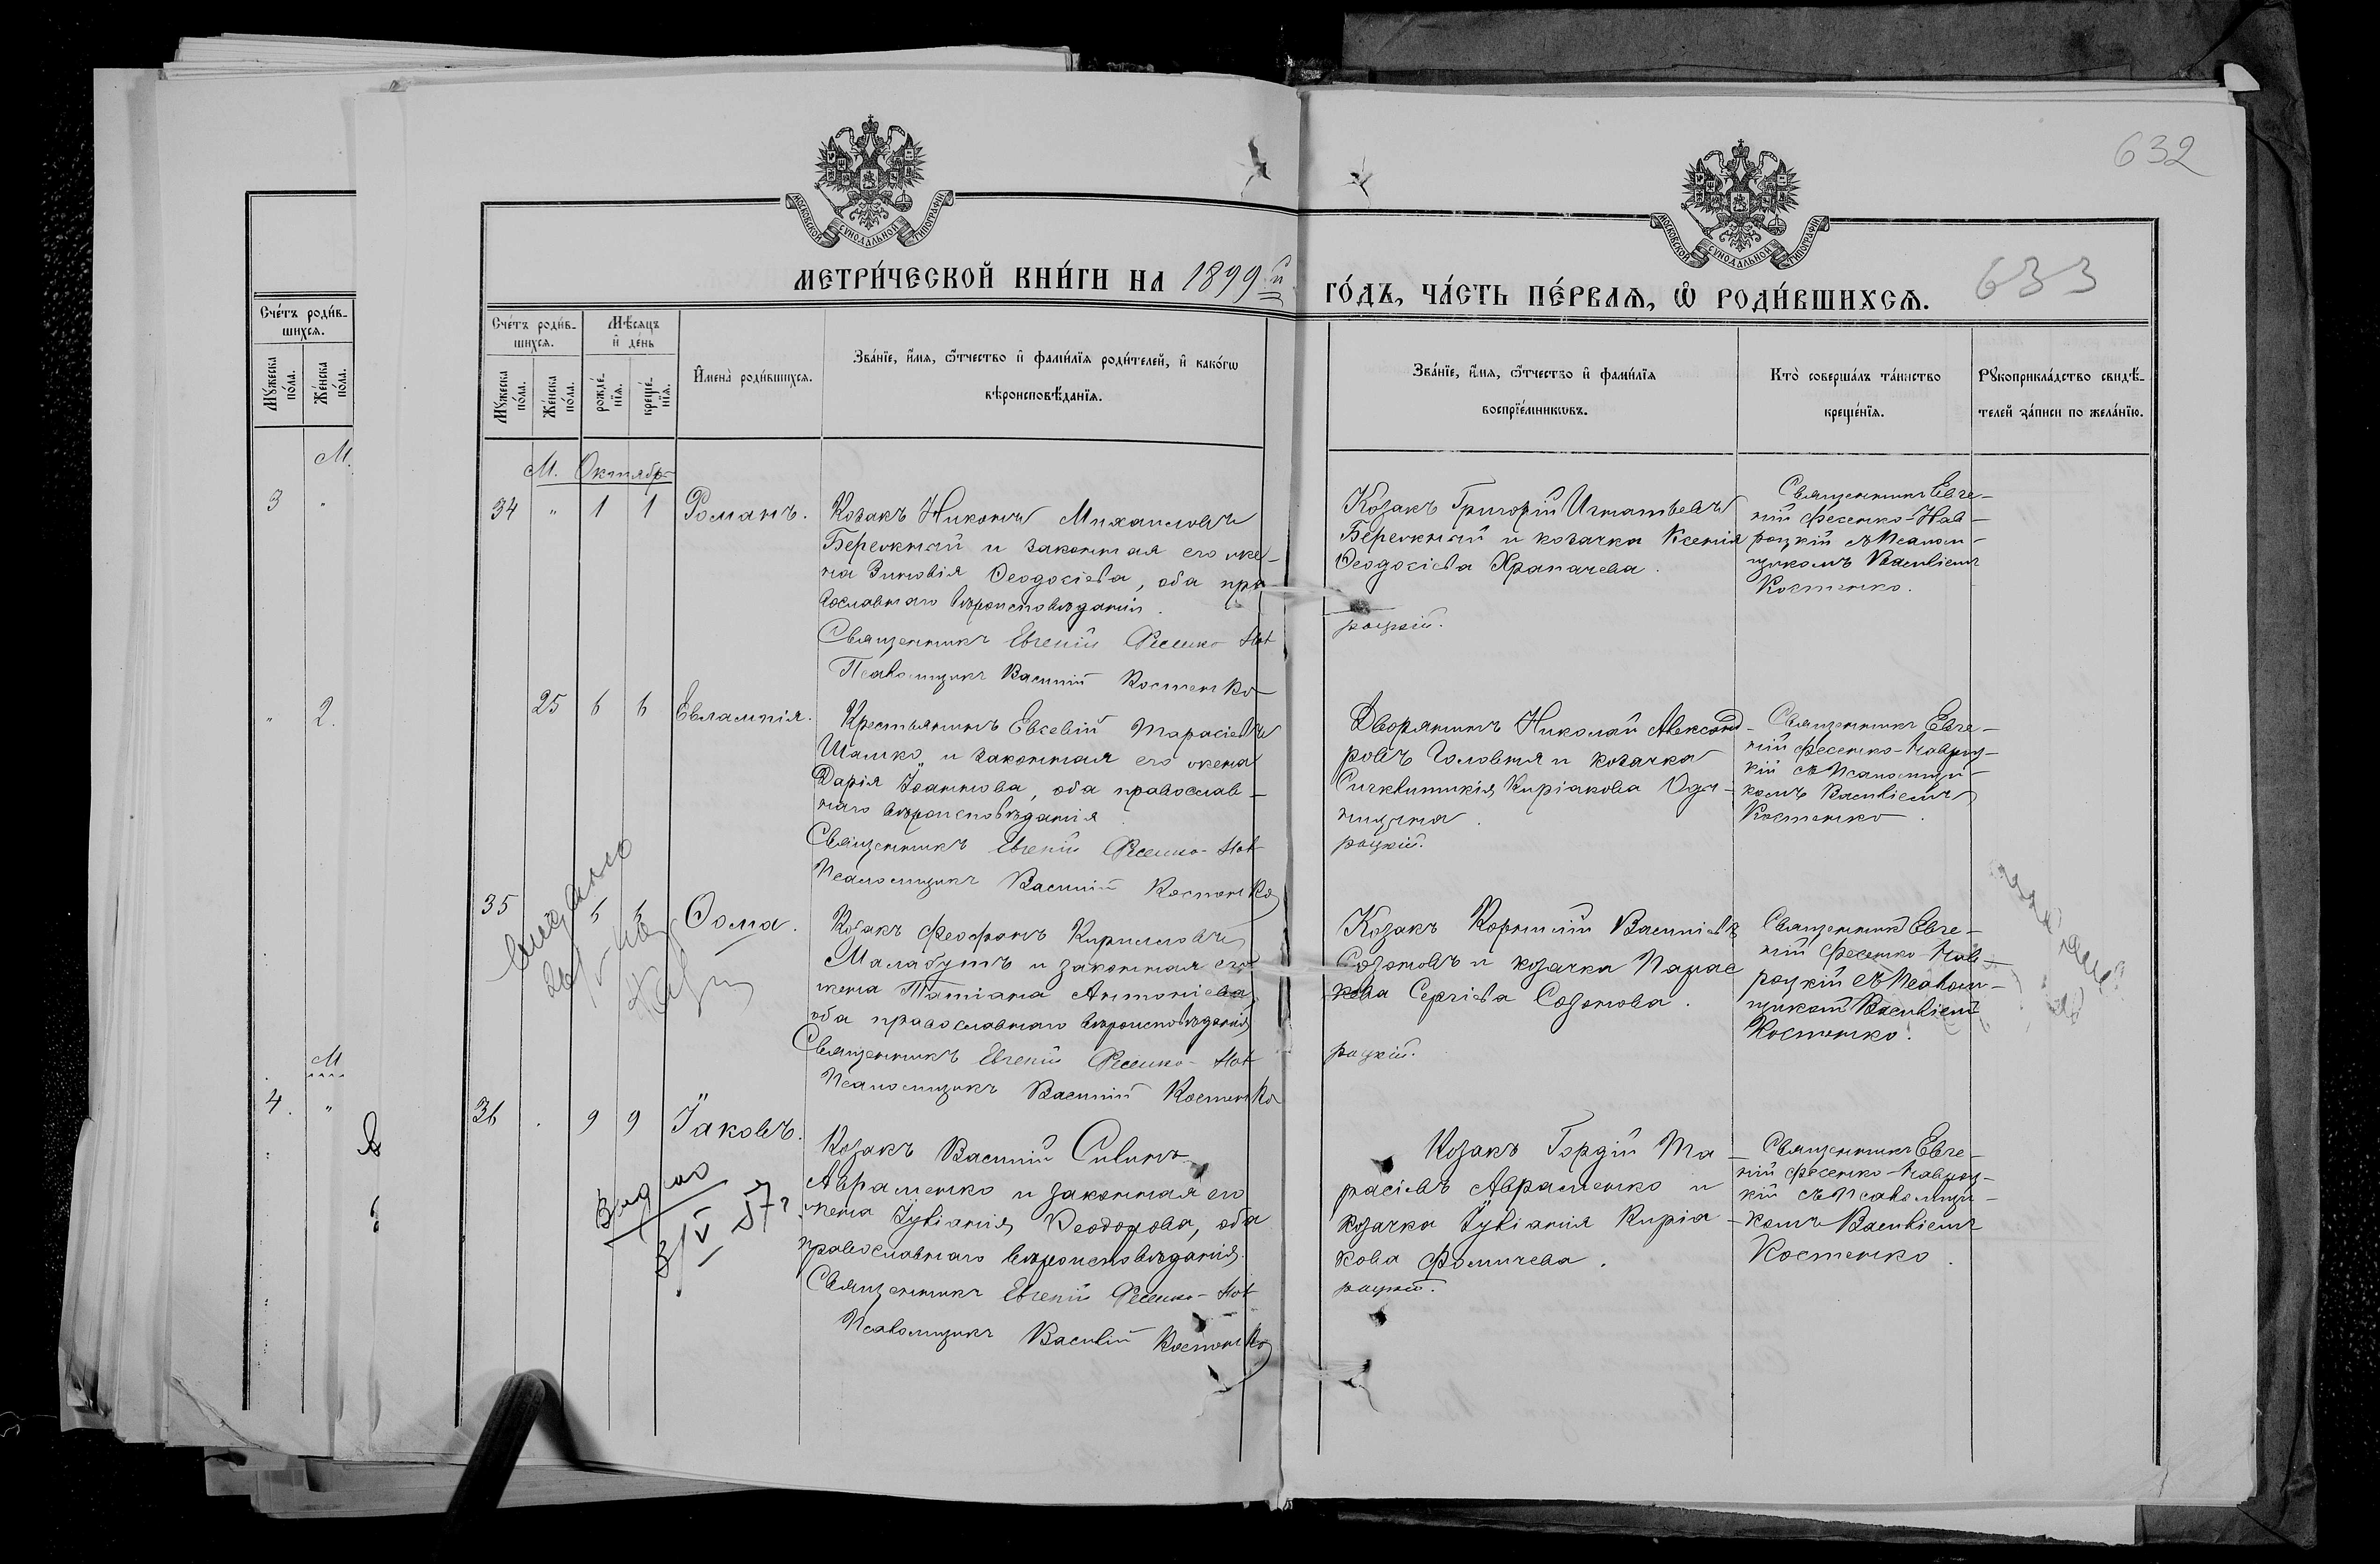 632
МОСКОВСКОЙ СѴНОДАЛЬНОЙ ТИПОГРАФІИ
МОСКОВСКОЙ СѴНОДАЛЬНОЙ ТИПОГРАФІИ
МЕТРИ́ЧЕСКОЙ КНИ́ГИ НА 1899 й
ГО́ДЪ, ЧА́СТЬ ПЕ́РВАѦ, Ѡ҆ РОДИ́ВШИХСѦ.
633
Сче́тъ роди́в-
шихсѧ.
Мꙋ́жеска по́ла.
Же́нска по́ла.
М.
3 "
" 2.
М
4. "
Сче́тъ роди́в-
шихсѧ.
Мꙋ́жеска по́ла.
Же́нска по́ла.
Мѣ́сѧцъ
и҆ де́нь
рожде́-
нїѧ.
креще́-
нїѧ.
И҆мена̀ роди́вшихсѧ.
Зва́нїе, и҆́мѧ, ѻ҆́тчество и҆ фами́лїѧ роди́телей, и҆ како́гѡ
вѣроисповѣ́данїѧ.
Зва́нїе, и҆́мѧ, ѻ҆́тчество и҆ фами́лїѧ
воспрїе́мникѡвъ.
Кто̀ соверша́лъ та́инство
креще́нїѧ.
Рꙋкоприкла́дство свидѣ́-
телей за́писи по жела́нїю.
М. Октябрь
34 " 1 1 Романъ.
Козакъ Никонъ Михаиловъ
Бережный и законная его же-
на Зиновія Ѳеодосіева, оба пра
вославнаго вѣроисповѣданія.
Священникъ Евгеній Фесенко-Нав
Псаломщикъ Василій Костенко
Козакъ Григорій Игнатьевъ
Бережный и козачка Ксенія
Ѳеодосіева Храпачева.
роцкій.
Священникъ Евге-
ній Фесенко-Нав-
роцкій съ Псалом-
щикомъ Василіемъ
Костенко.
25 6 6 Евлампія.
Крестьянинъ Евсевій Тарасіевъ
Шамко и законная его жена
Дарія Іоаннова, оба православ-
наго вѣроисповѣданія
Священникъ Евгеній Фесенко-Нав
Псаломщикъ Василій Костенко
Дворянинъ Николай Александ-
ровъ Головня и козачка
Синклитикія Киріакова
роцкій.
Священникъ Евге-
ній Фесенко-Навроц-
кій съ Псаломщи-
комъ Василіемъ
Костенко.
35 5 Ѳома.
Козакъ Феофанъ Кирилловъ
Малабутъ и законная его
жена Татіана Антоніева,
оба православнаго вѣроисповѣданія
Священникъ Евгеній Фесенко-Нав
Псаломщикъ Василій Костенко
Козакъ Корнилій Василіевъ
Созоновъ и козачка Парас
кева Сергіева Созонова.
роцкій.
Священникъ Евге-
ній Фесенко-Нав-
роцкій съ Псалом-
щикомъ Василіемъ
Костенко.
36 . 9 9 Іаковъ.
Козакъ Василій Силинъ
Авраменко и законная его
жена Іуліанія Ѳеодорова, оба
православнаго вѣроисповѣданія.
Священникъ Евгеній Фесенко-Нав
Псаломщикъ Василій Костенко
Видано
3/V 57г
Козакъ Гордій Та-
расіевъ Авраменко и
козачка Іуліанія Киріа-
кова Фомичева.
роцкій.
Священникъ Евге-
ній Фесенко-Навроц-
кій съ Псаломщи-
комъ Василіемъ
Костенко.